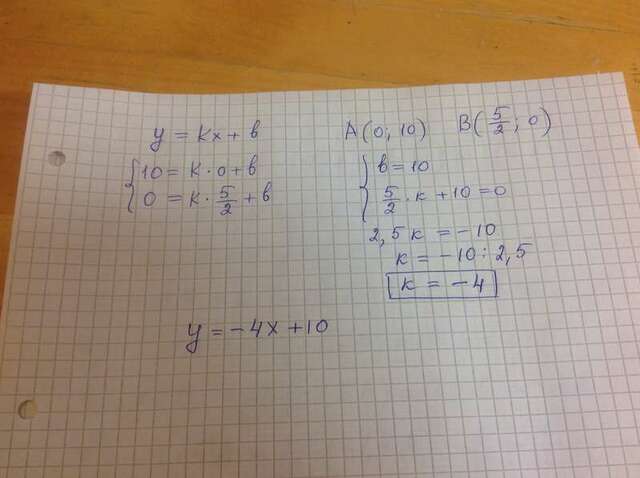 y = kx + b
A(0; 10) B(5/2; 0)
{10 = k · 0 + b
0 = k · 5/2 + b
{b = 10
5/2 · k + 10 = 0
2,5 k = -10
k = -10 : 2,5
k = -4
y = -4x + 10